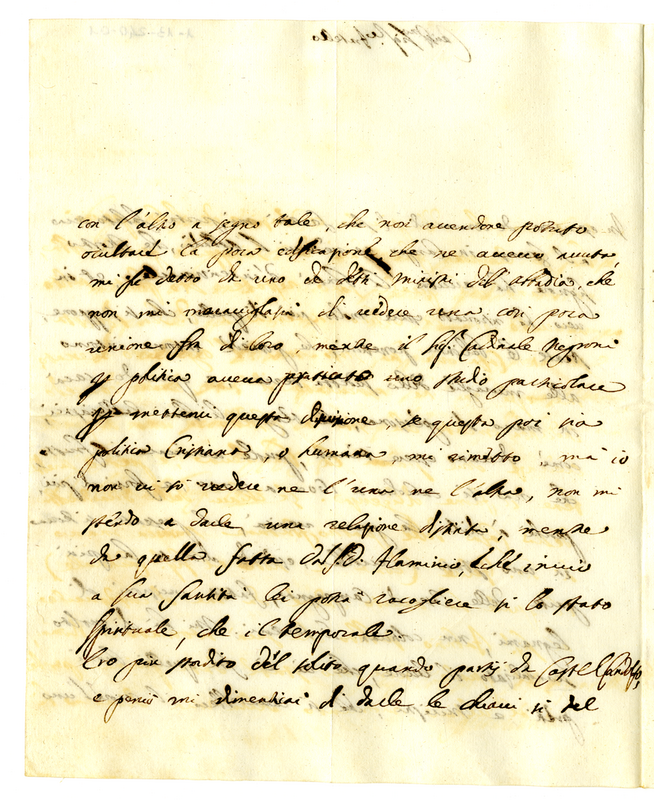 con l'altro a segno tale, che non avendone potuto
ocultare la poca edificazione che ne avevo avuta,
mi fu detto da uno de detti ministri dell'abbadia, che
non mi maravigliassi di vedere una così poca
unione fra di loro, mentre il Sig.r Cardinale Negroni
per politica aveva praticato uno studio particolare
per mettervi questa divisione, se questa poi sia
politica Cristiana, o humana, mi rimetto, ma io
non vi sò vedere ne l'una ne l'altra, non mi
stendo a darle una relazione distinta, mentre
da quella fatta dal P.D. Flaminio, che invio
a Sua Santità lei potrà racogliere si lo stato
spirituale, che il temporale.
Ero più stordito del solito quando partij da Castel Gandolfo,
e perciò mi dimenticai di darle le chiavi si del